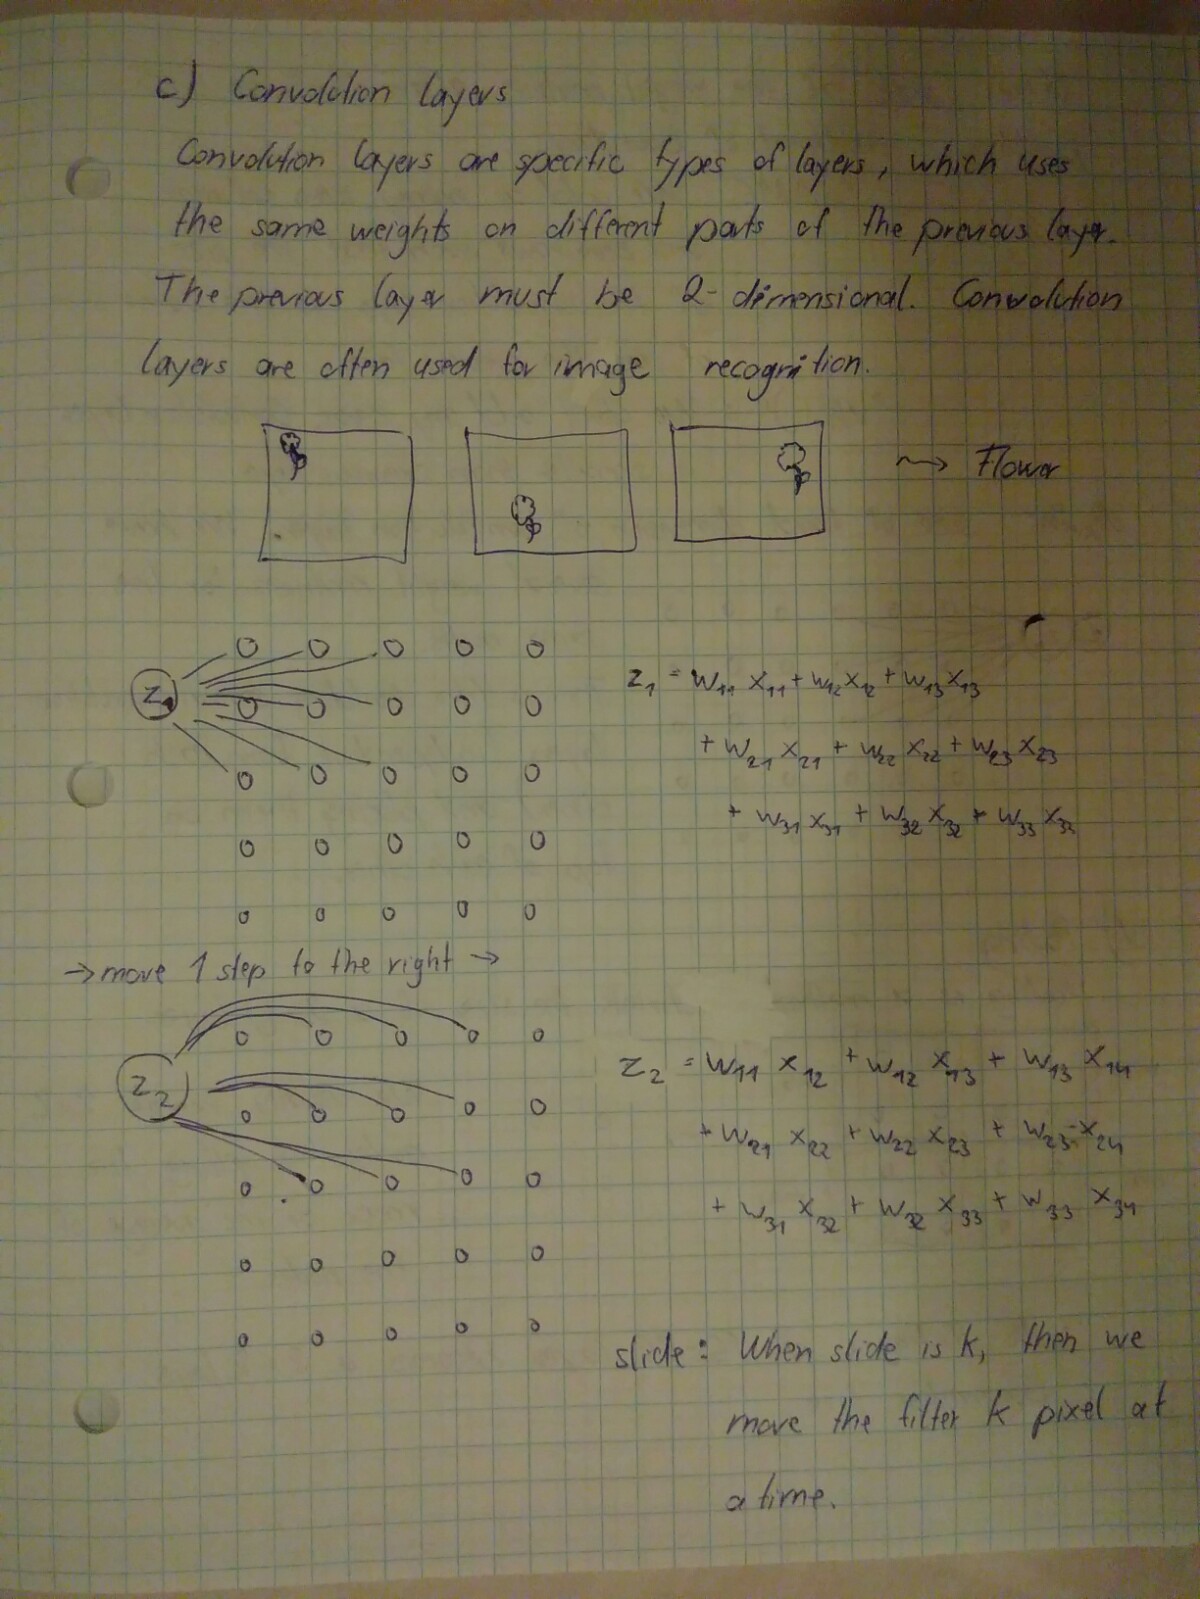 c) Convolution layers
Convolution layers are specific types of layers, which uses
the same weights on different parts of the previous layer.
The previous layer must be 2-dimensional. Convolution
layers are often used for image recognition.
~> Flower
Z1
z1 = w11 x11 + w12 x12 + w13 x13
+ w21 x21 + w22 x22 + w23 x23
+ w31 x31 + w32 x32 + w33 x33
→ move 1 step to the right →
Z2
z2 = w11 x12 + w12 x13 + w13 x14
+ w21 x22 + w22 x23 + w23 x24
+ w31 x32 + w32 x33 + w33 x34
slide: When slide is k, then we
move the filter k pixel at
a time.